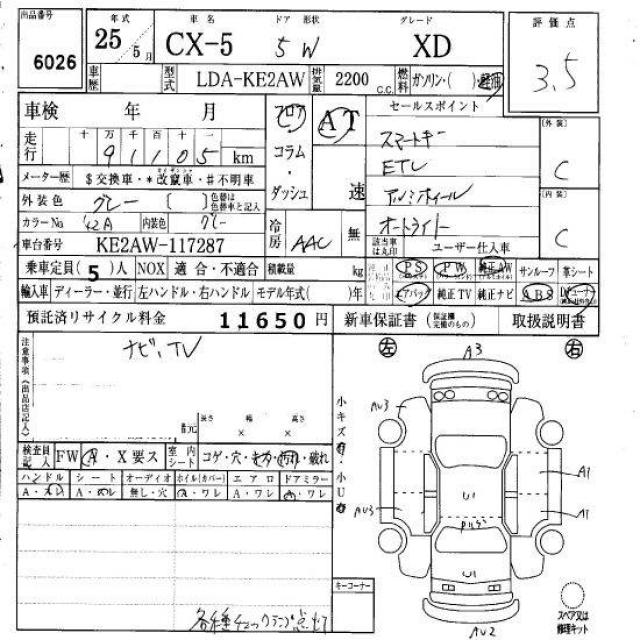 出品番号 年式 車名 ドア 形状 グレード 評価点
6026 25年 5月 CX-5 5 W XD 3.5
車歴 型式 LDA-KE2AW 排気量 2200 C.C. 燃料 ガソリン・( )・軽油
車検 年 月 フロア AT セールスポイント
走行 十万千百十一 スマートキー [外装]
91105 km コラム ETC C
メーター歴 $交換車・*改竄車・#不明車 ・ダッシュ 速 アルミホイール [内装]
外装色 グレー ( ) 色替は色替車と記入 オートライト C
カラーNo 42A 内装色 グレー 冷房 AAC 無 該当車は丸印 ユーザー仕入車
車台番号 KE2AW-117287
乗車定員(5)人 NOX 適合・不適合 積載量 kg PS PW 純正AW サンルーフ 革シート
輸入車 ディーラー・並行 左ハンドル・右ハンドル モデル年式( )年 エアバッグ 純正TV 純正ナビ ABS
預託済リサイクル料金 11650円 新車保証書 (保証欄完備のもの) 取扱説明書
注意事項(出品店記入) ナビ、TV 左 右
A3
AU3
長さ 幅 高さ
× ×
小キズ 小U
検査員記入 FW A・X要ス 室内シート コゲ・穴・キズ・汚れ・破れ
ハンドル シート オーディオ ホイル(カバー) エアロ ドアミラー
A・スレ A・スレ 無し・穴 A・ワレ A・ワレ A・ワレ
A1
AU3 U1 A1
U1
キーコーナー
各種チェックランプ点灯
AU2
スペア又は修理キット